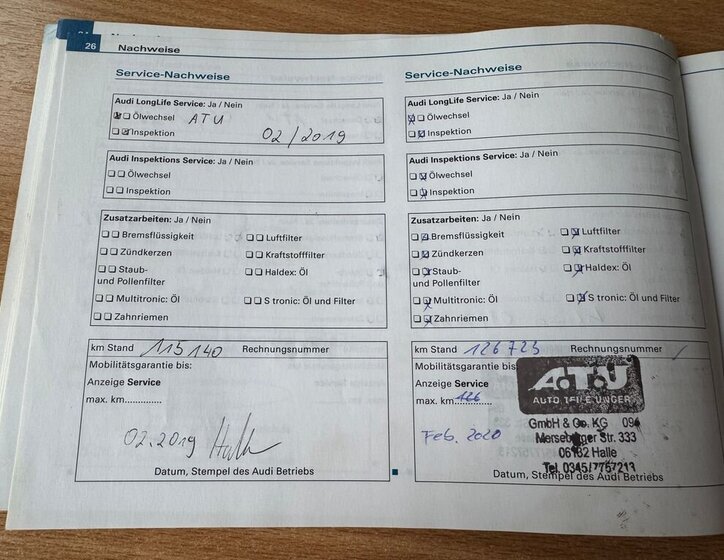 26
Nachweise
Service-Nachweise
Audi LongLife Service: Ja / Nein
Ölwechsel ATU
Inspektion 02/2019
Audi Inspektions Service: Ja / Nein
Ölwechsel
Inspektion
Zusatzarbeiten: Ja / Nein
Bremsflüssigkeit Luftfilter
Zündkerzen Kraftstofffilter
Staub- Haldex: Öl
und Pollenfilter
Multitronic: Öl S tronic: Öl und Filter
Zahnriemen
km Stand 115140 Rechnungsnummer
Mobilitätsgarantie bis:
Anzeige Service
max. km..............
02.2019
Datum, Stempel des Audi Betriebs
Service-Nachweise
Audi LongLife Service: Ja / Nein
Ölwechsel
Inspektion
Audi Inspektions Service: Ja / Nein
Ölwechsel
Inspektion
Zusatzarbeiten: Ja / Nein
Bremsflüssigkeit Luftfilter
Zündkerzen Kraftstofffilter
Staub- Haldex: Öl
und Pollenfilter
Multitronic: Öl S tronic: Öl und Filter
Zahnriemen
km Stand 126723 Rechnungsnummer
Mobilitätsgarantie bis:
Anzeige Service
max. km..............
A.T.U
AUTO TEILE UNGER
GmbH & Co. KG
Feb. 2020
Merseburger Str. 333
06132 Halle
Tel. 0345/7757213
Datum, Stempel des Audi Betriebs